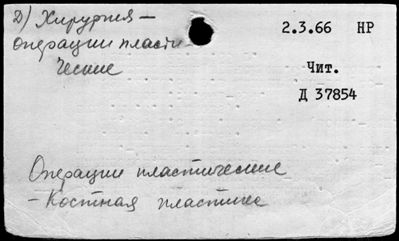 2) Хирургия –
операции пласти
ческие
2.3.66 НР
Чит.
Д 37854
Операции пластические
– Костная пластика